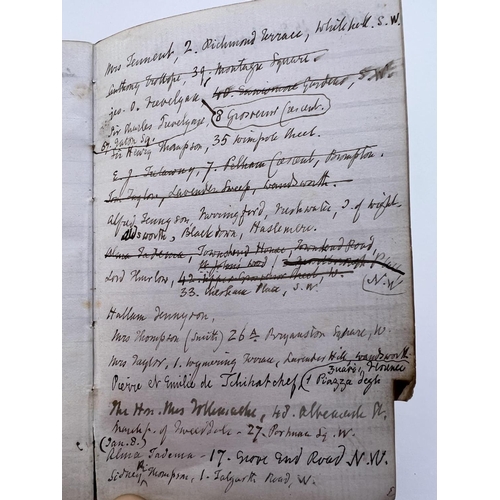 Mrs Tennent, 2. Richmond Terrace, Whitehall. S.W.
Anthony Trollope, 39, Montagu Square.
Geo. O. Trevelyan, 48. Ennismore Gardens, S.W.
Sir Charles Trevelyan, 8 Grosvenor Crescent
Eaton Sqr
Sir Henry Thompson, 35 Wimpole Street.
E. J. Trelawny, 7. Pelham Crescent, Brompton.
Tom Taylor, Lavender Sweep, Wandsworth.
Alfred Tennyson, Farringford, Freshwater, I. of Wight.
Aldsworth, Blackdown, Haslemere.
Alma Tadema, Townshend House, Townshend Road,
St Johns Wood
N.W.
Lord Thurlow, 42. Upper Grosvenor Street, W.
33. Chesham Place, S.W.
Hallam Tennyson,
Mrs Thompson (Smith) 26A Bryanston Square, W.
Mrs Taylor, 1. Wymering Terrace, Lavender Hill, Wandsworth
Pierre et Emilie de Tchihatchef, 1 Piazza degli
Zuavi, Florence
The Hon. Mrs Tollemache, 48. Albemarle St.
March: of Tweeddale - 27. Portman Sq. W.
(Jan. 8.)
Alma Tadema - 17. Grove End Road N.W.
Sidney Thompson, 1. Talgarth Road, W.